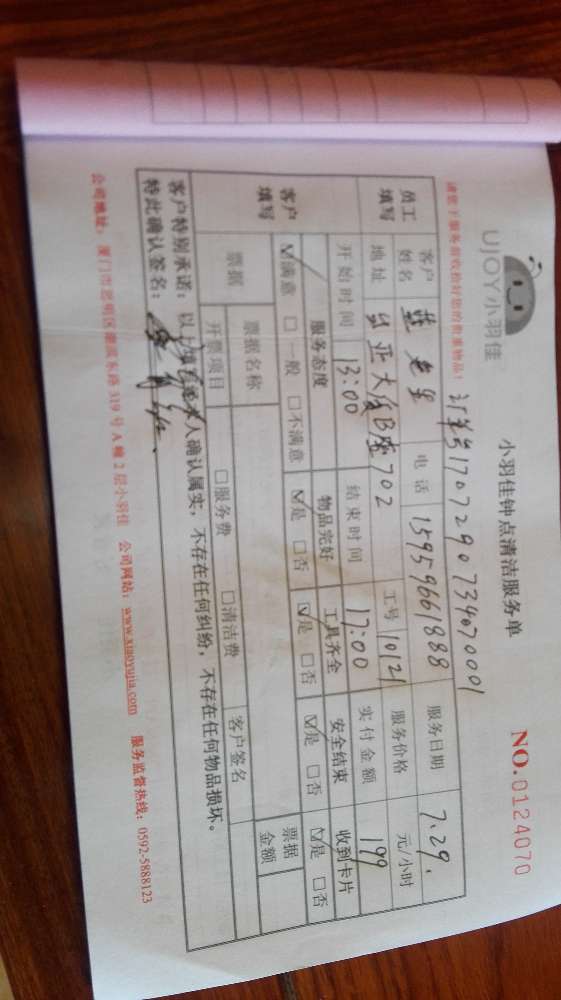 UJOY小羽佳
小羽佳钟点清洁服务单
NO.0124070
请您于服务前收拾好您的贵重物品！
订单号170729073407000 1
员工填写 客户姓名 电话 15959661888 服务日期 7.29.
地址 大厦B座702 工号 10121 服务价格 元/小时
开始时间 13:00 结束时间 17:00 实付金额 199
客户填写 服务态度 物品完好 工具齐全 安全结束 收到卡片
☑满意 □一般 □不满意 ☑是 □否 ☑是 □否 ☑是 □否 ☑是 □否
票据 票据名称 客户签名 票据金额
开票项目 □服务费 □清洁费
客户特别承诺：以上填写经本人确认属实，不存在任何纠纷，不存在任何物品损坏。
特此确认签名：
公司地址：厦门市思明区湖滨东路319号A幢2层小羽佳 公司网站：www.xiaoyujia.com 服务监督热线：0592-5888123